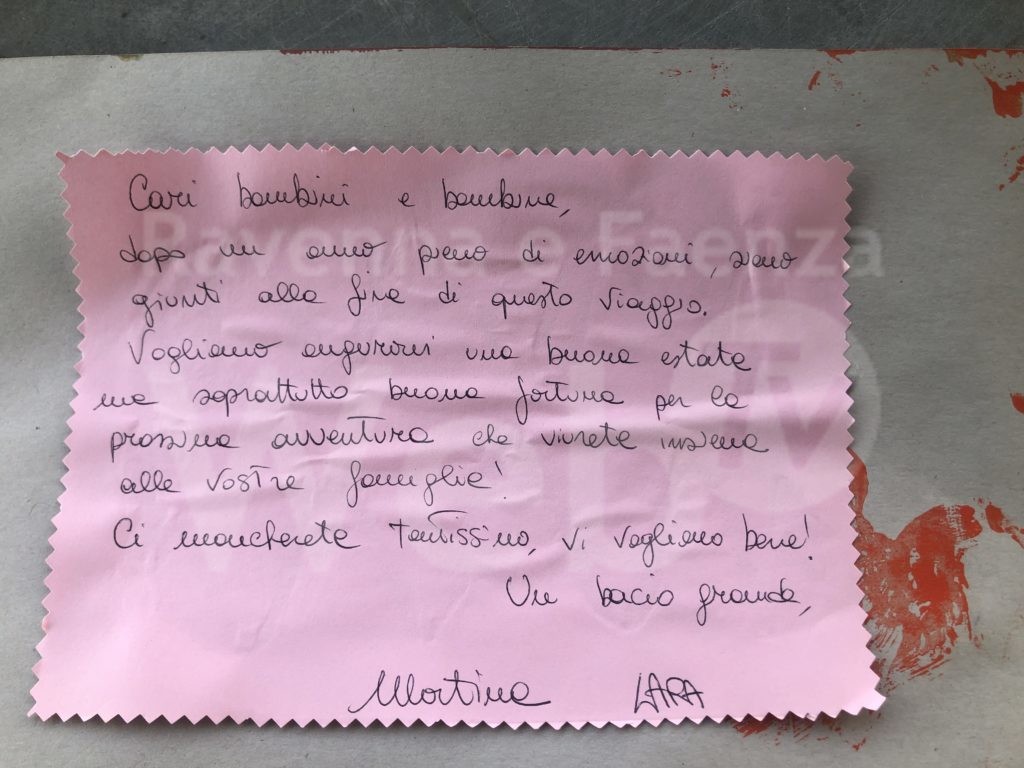 Cari bambini e bambine,
dopo un anno pieno di emozioni, siamo
giunti alla fine di questo viaggio.
Vogliamo augurarvi una buona estate
ma soprattutto buona fortuna per la
prossima avventura che vivrete insieme
alle vostre famiglie!
Ci mancherete tantissimo, vi vogliamo bene!
Un bacio grande,
Martina LARA
Ravenna e Faenza